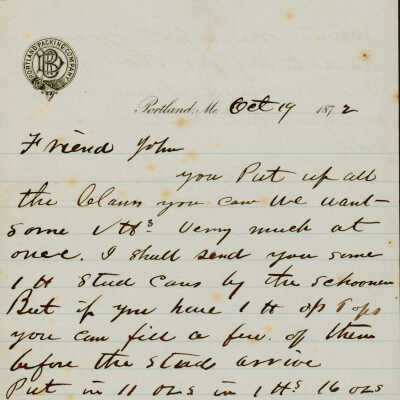 PORTLAND PACKING COMPANY
Portland, Me. Oct 19 1872
Friend John
you Put up all
the Clams you can We want
some 1 Hs very much at
once. I shall send you some
1 H Stud Cans by the Schooner
But if you have 1 H Tops
you can fill a few of them
before the Studs arrive
Put in 11 ozs in 1 Hs 16 ozs